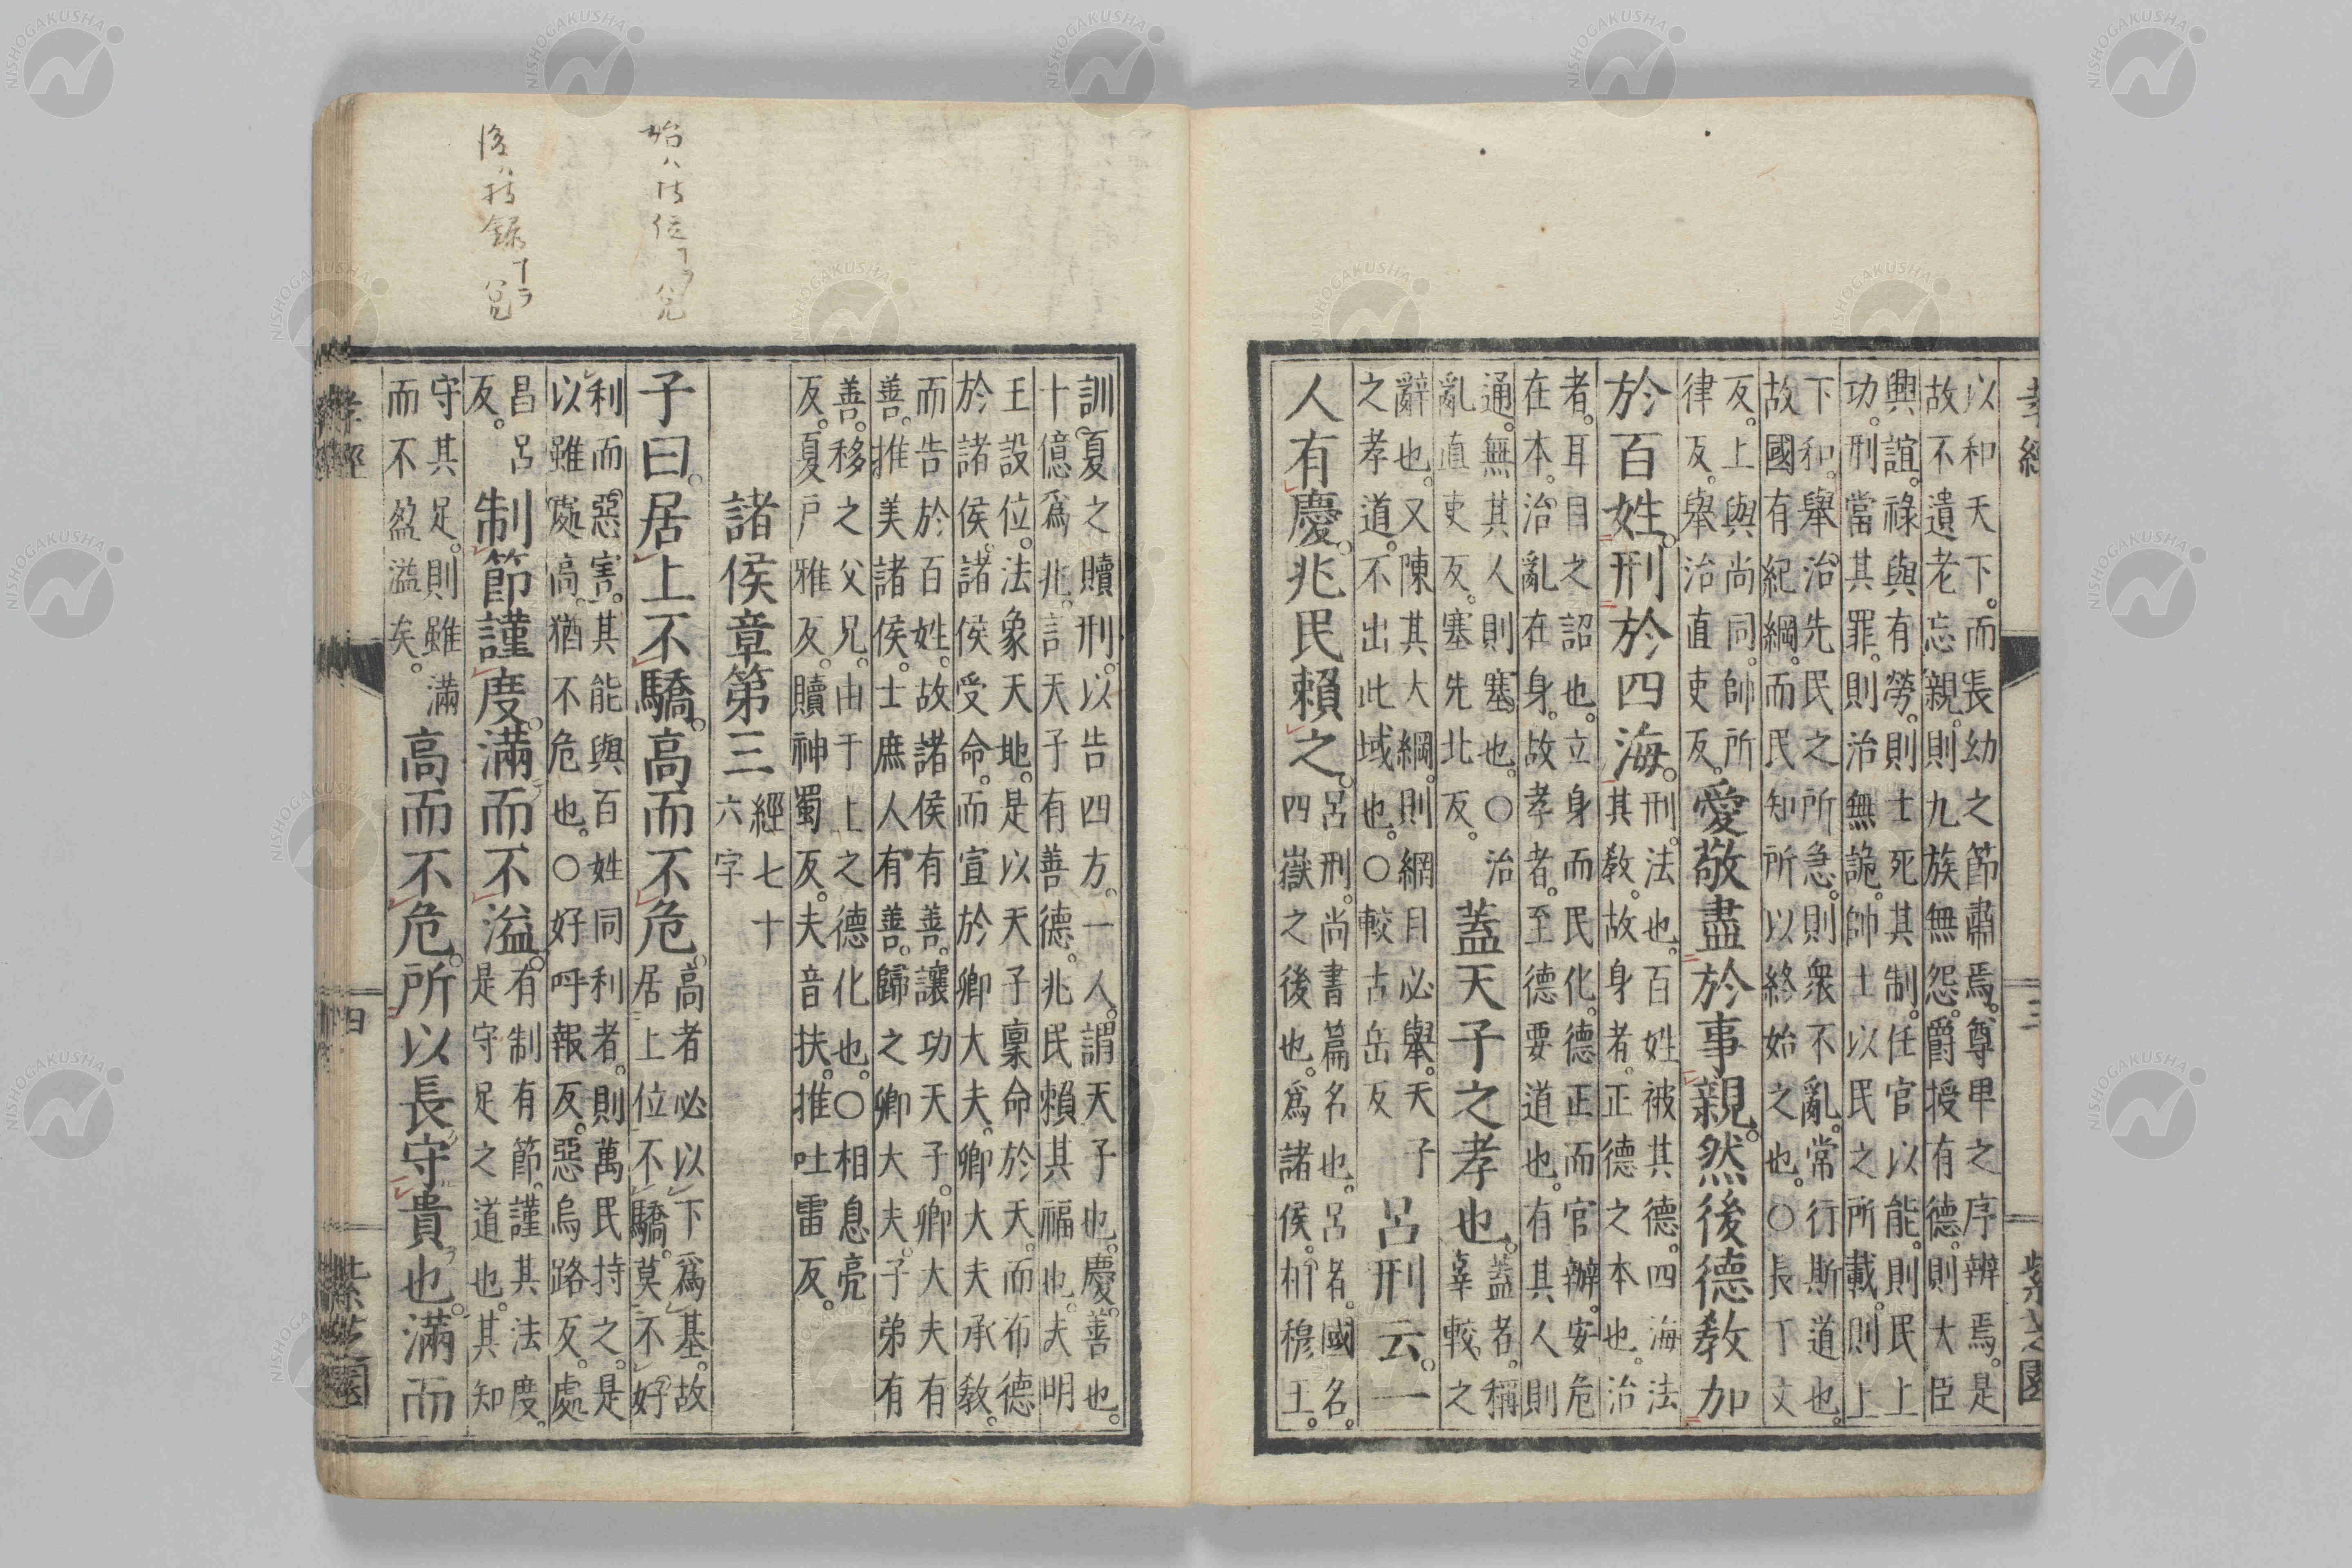 孝經
三
以和天下。而長幼之節肅焉。尊卑之序辨焉。是
故不遺老忘親。則九族無怨。爵授有德。則大臣
興誼。祿與有勞。則士死其制。任官以能。則民上
功。刑當其罪。則治無詭。帥士以民之所載。則上
下和。舉治先民之所急。則衆不亂。常行斯道也。
故國有紀綱。而民知所以終始之也。○長丁丈
反。上與尚同。帥所
律反。舉治直吏反。
愛敬盡於事親。然後德教加
於百姓。刑於四海。
刑。法也。百姓被其德。四海法
其教。故身者。正德之本也。治
者。耳目之詔也。立身而民化。德正而官辦。安危
在本。治亂在身。故孝者。至德要道也。有其人則
通。無其人則塞也。○治
亂直吏反。塞先北反。
蓋天子之孝也。
蓋者。稱
辜較之
辭也。又陳其大綱。則網目必舉。天子
之孝道。不出此域也。○較古岳反
呂刑云。一
人有慶。兆民賴之。
呂刑。尚書篇名也。呂者。國名。
四嶽之後也。爲諸侯。相穆王。
訓夏之贖刑。以告四方。一人。謂天子也。慶。善也。
十億爲兆。言天子有善德。兆民賴其福也。夫明
王設位。法象天地。是以天子稟命於天。而布德
於諸侯。諸侯受命。而宣於卿大夫。卿大夫承教。
而告於百姓。故諸侯有善。讓功天子。卿大夫有
善。推美諸侯。士庶人有善。歸之卿大夫。子弟有
善。移之父兄。由于上之德化也。○相息亮
反。夏戶雅反。贖神蜀反。夫音扶。推吐雷反。
諸侯章第三
經七十
六字
子曰。居上不驕。高而不危。
高者必以下爲基。故
居上位不驕。莫不好
利而惡害。其能與百姓同利者。則萬民持之。是
以雖處高。猶不危也。○好呼報反。惡烏路反。處
昌呂
反。
制節謹度。滿而不溢。
有制有節。謹其法度。
是守足之道也。其知
守其足。則雖滿
而不盈溢矣。
高而不危。所以長守貴也。滿而
孝經
四
紫芝園
NISHOGAKUSHA